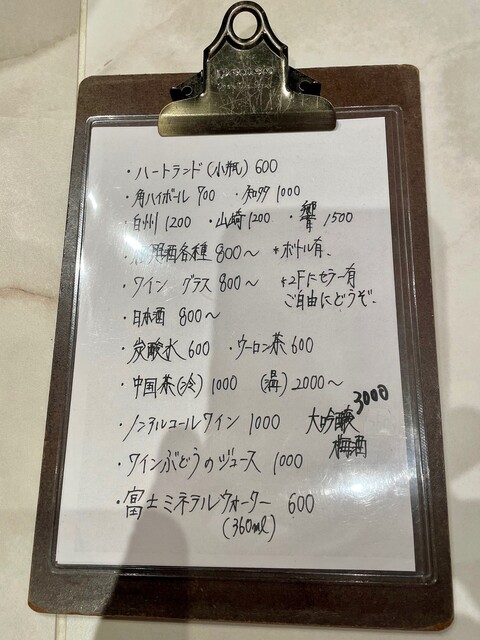 ・ハートランド(小瓶) 600
・角ハイボール 700 ・知多 1000
・白州 1200 ・山崎 1200 ・響 1500
酒各種 800〜 *ボトル有、
・ワイン グラス 800〜 *2Fにセラー有
ご自由にどうぞ.
・日本酒 800〜
・炭酸水 600 ・ウーロン茶 600
・中国茶(冷) 1000 (温) 2000〜
・ノンアルコールワイン 1000 大吟醸 3000
梅酒
・ワインぶどうのジュース 1000
・富士ミネラルウォーター 600
(360ml)